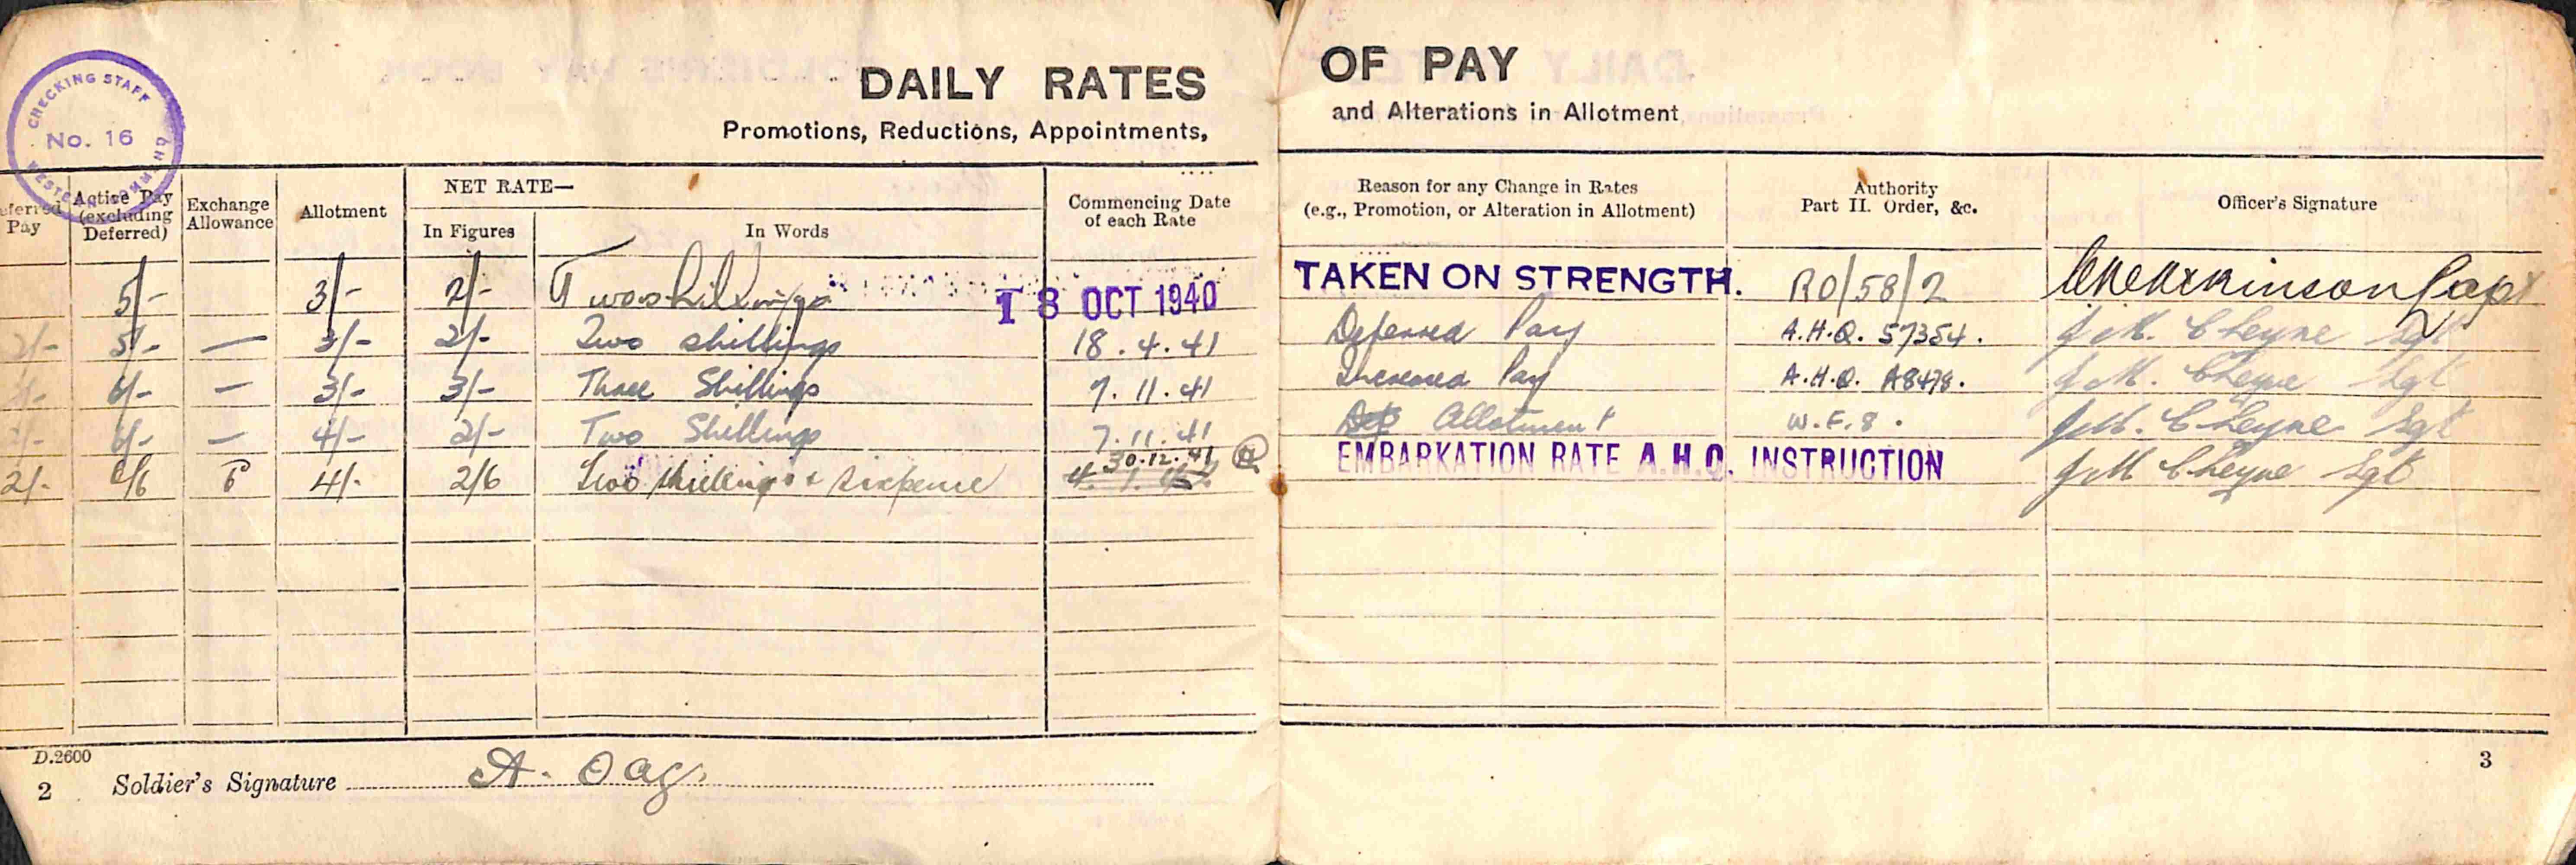 CHECKING STAFF
No. 16
WESTERN COMMAND
DAILY RATES OF PAY
Promotions, Reductions, Appointments, and Alterations in Allotment
eferred Pay
Active Pay (excluding Deferred)
Exchange Allowance
Allotment
NET RATE—
In Figures
In Words
Commencing Date of each Rate
Reason for any Change in Rates (e.g., Promotion, or Alteration in Allotment)
Authority Part II. Order, &c.
Officer's Signature
5/- 3/- 2/- Two shillings 18 OCT 1940 TAKEN ON STRENGTH. RO/58/2 Capt
2/- 5/- — 3/- 2/- Two shillings 18.4.41 Deferred Pay A.H.Q. 57354. J M. Cheyne Sgt
6/- — 3/- 3/- Three Shillings 7.11.41 Increased Pay A.H.Q. A8478. J M. Cheyne Sgt
6/- — 4/- 2/- Two Shillings 7.11.41 Allotment W.F.8. J M. Cheyne Sgt
2/- 6/6 4/- 2/6 Two shillings & sixpence 30.12.41 EMBARKATION RATE A.H.Q. INSTRUCTION J M Cheyne Sgt
D.2600
2 Soldier's Signature A. Oag
3